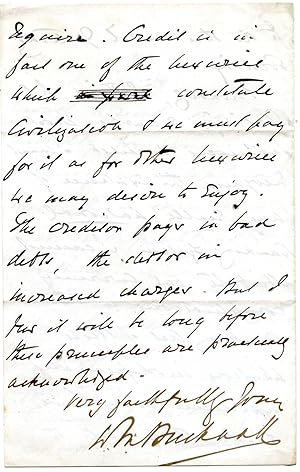 Enquire. Credit is in
fact one of the luxuries
which constitute
Civilization & we must pay
for it as for other luxuries
we may desire to Enjoy.
The creditor pays in bad
debts, the debtor in
increased charges. But I
fear it will be long before
these principles are practically
acknowledged.
Very faithfully Yours